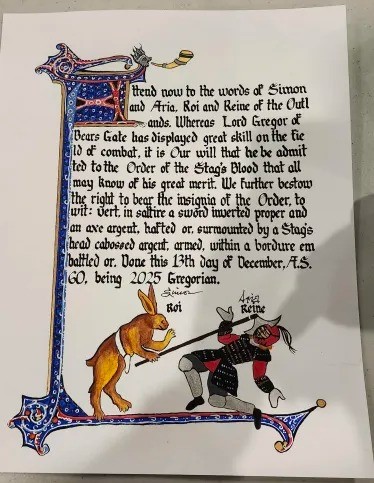 Attend now to the words of Simon
and Aria, Roi and Reine of the Outl
ands. Whereas Lord Gregor of
Bears Gate has displayed great skill on the fie
ld of combat, it is Our will that he be admit
ted to the Order of the Stag's Blood that all
may know of his great merit. We further bestow
the right to bear the insignia of the Order, to
wit: vert, in saltire a sword inverted proper and
an axe argent, hafted or, surmounted by a Stag's
head cabossed argent, armed, within a bordure em
battled or. Done this 13th day of December, A.S.
60, being 2025 Gregorian.
Simon
Roi
Aria
Reine